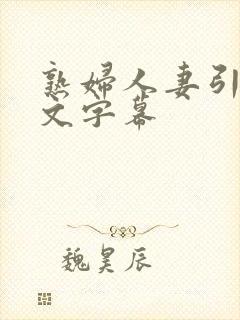 熟婦人妻引
文字幕
魏昊辰